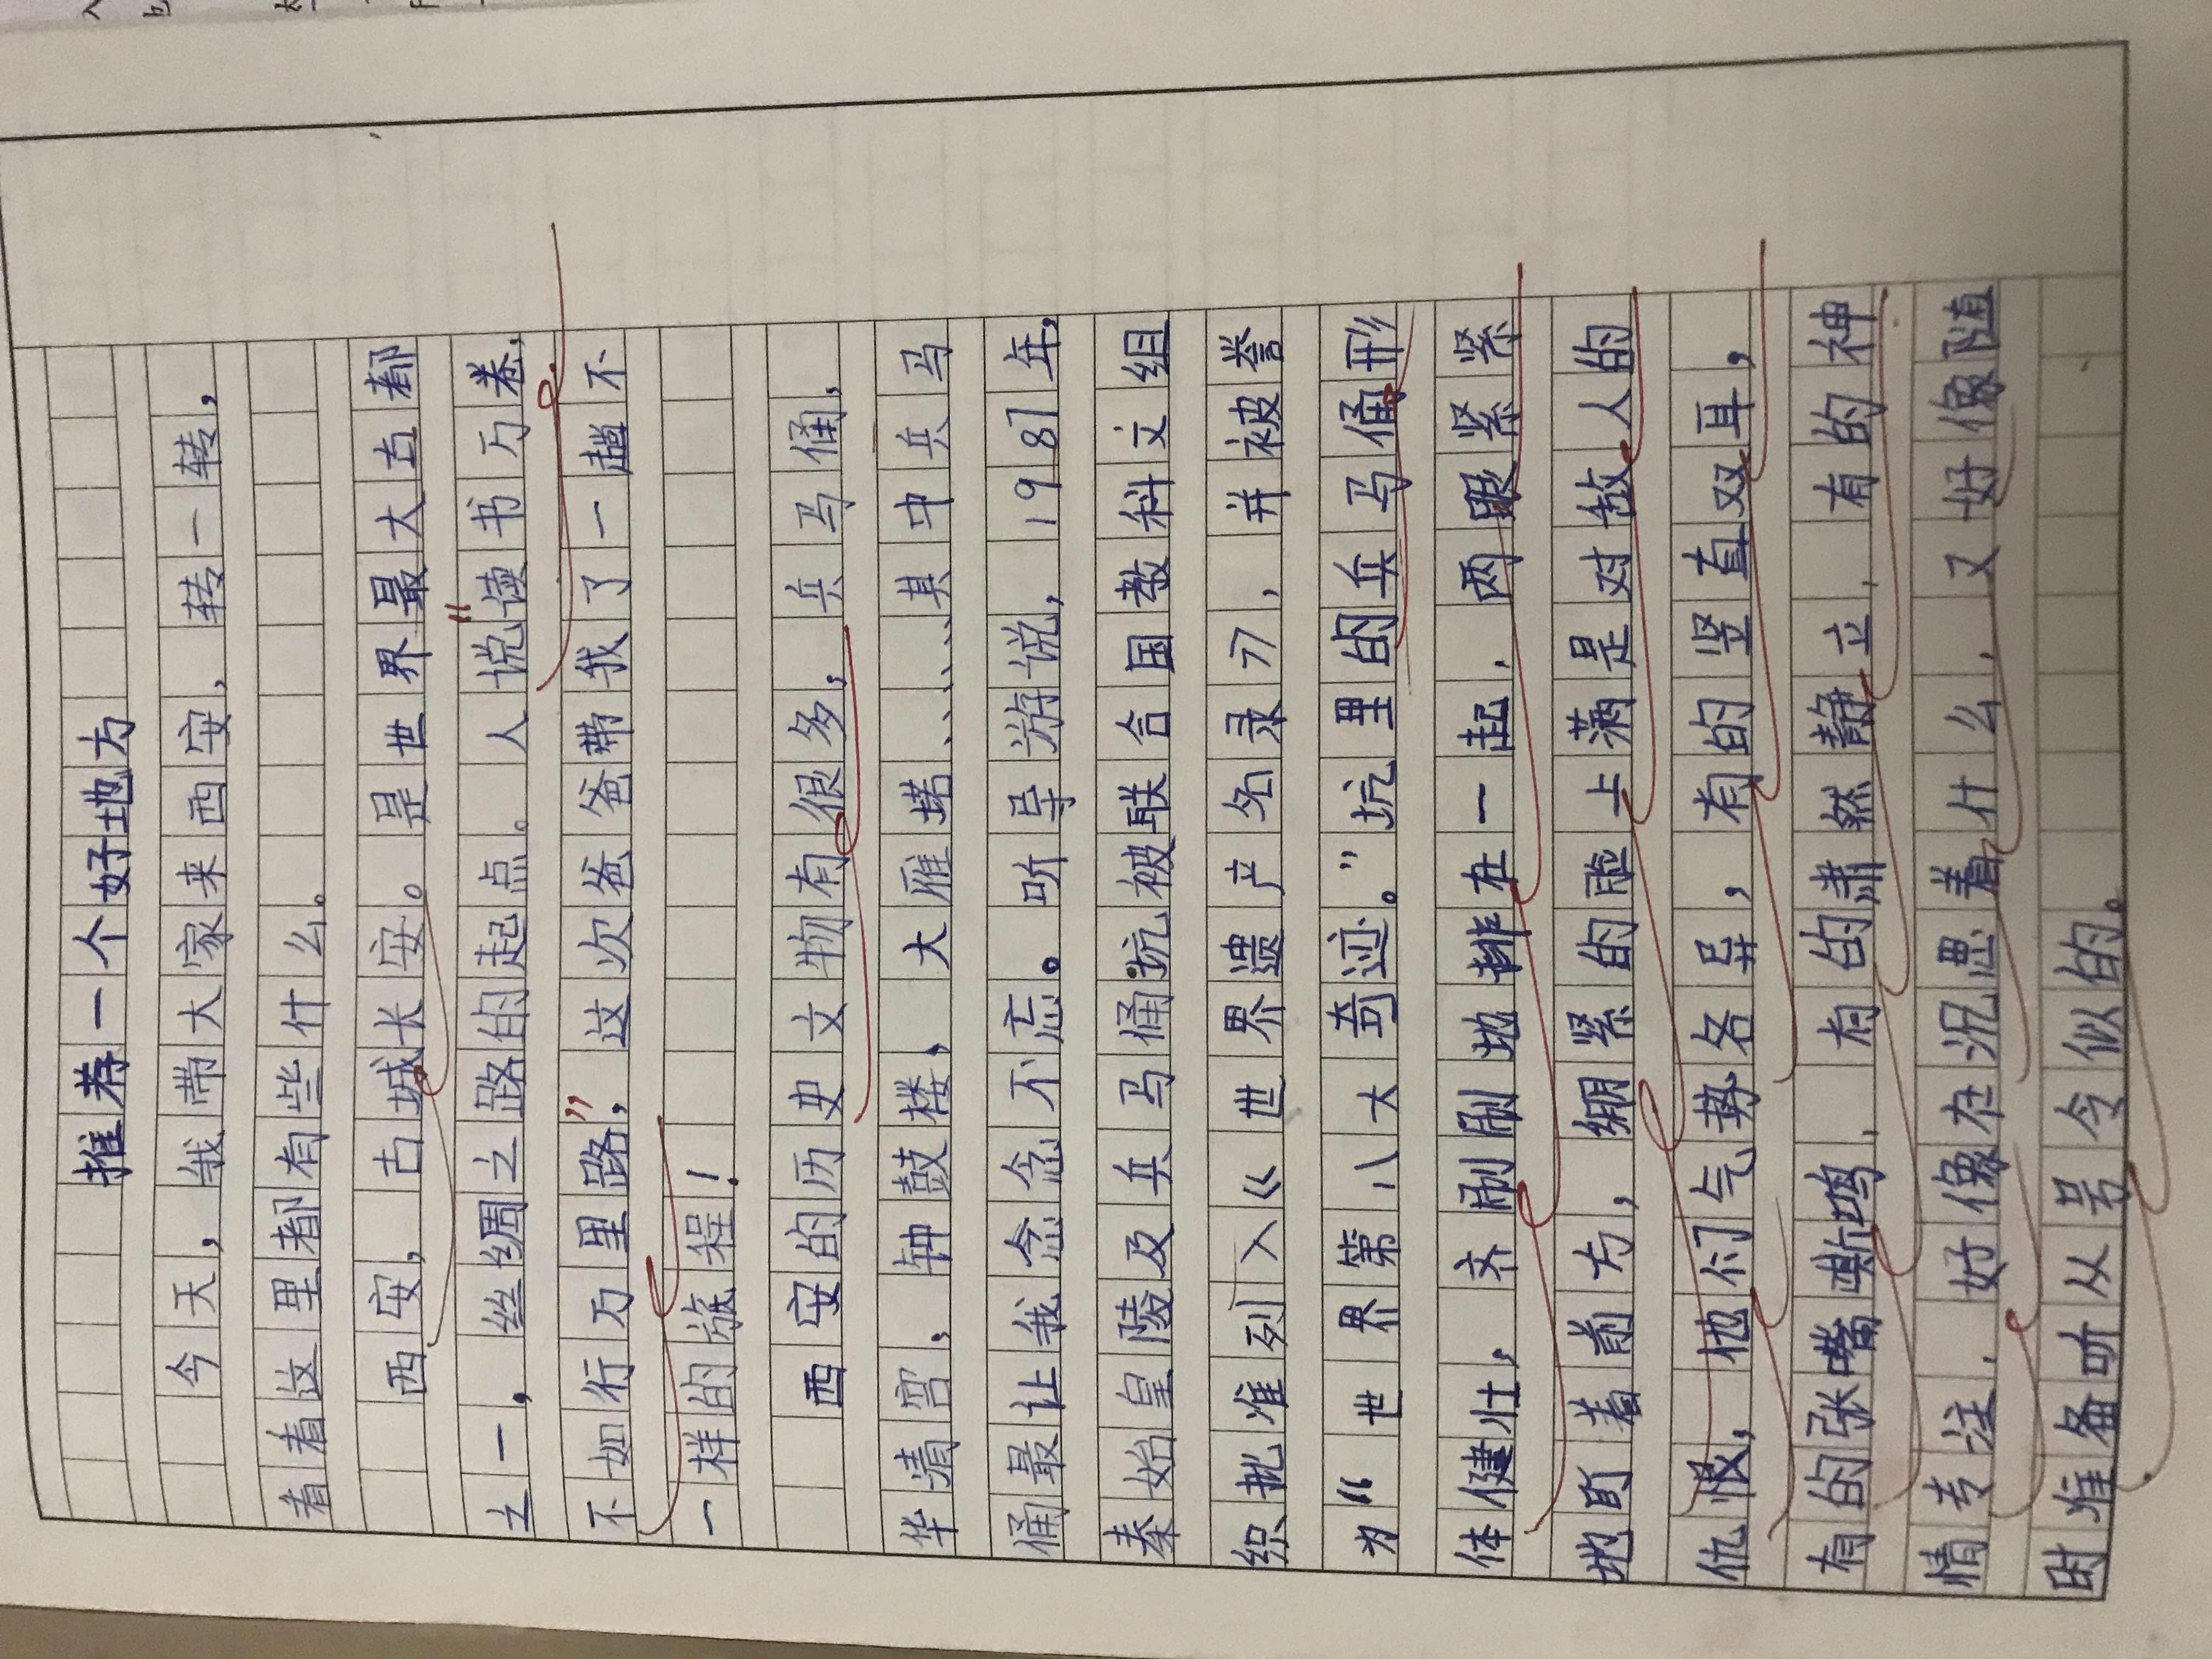 推荐一个好地方
今天，我带大家来西安，转一转，
看看这里都有些什么。
西安，古城长安。是世界最大古都
之一，丝绸之路的起点。人说“读书万卷，
不如行万里路”，这次爸爸带我了一趟不
一样的旅程！
西安的历史文物有很多，兵马俑，
华清宫，钟鼓楼，大雁塔、、、、、其中兵马
俑最让我念念不忘。听导游说，1987年，
秦始皇陵及兵马俑坑被联合国教科文组
织批准列入《世界遗产名录》，并被誉
为“世界第八大奇迹。”坑里的兵马俑形
体健壮，齐刷刷地排在一起，两眼紧紧
地盯着前方，绷紧的脸上满是对敌人的
仇恨，他们气势各异，有的竖直双耳，
有的张嘴嘶鸣，有的肃然静立，有的神
情专注，好像在沉思着什么，又好像随
时准备听从号令似的。